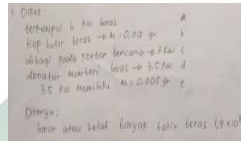 1. Diket:
terkumpul 6 kw beras a
tiap butir beras → m = 0,015 gr b
dibagi pada korban bencana → 7 kw c
donatur memberi beras → 3,5 kw d
3,5 kw memiliki m = 0,005 gr e
Ditanya:
benar atau salah banyak butir beras